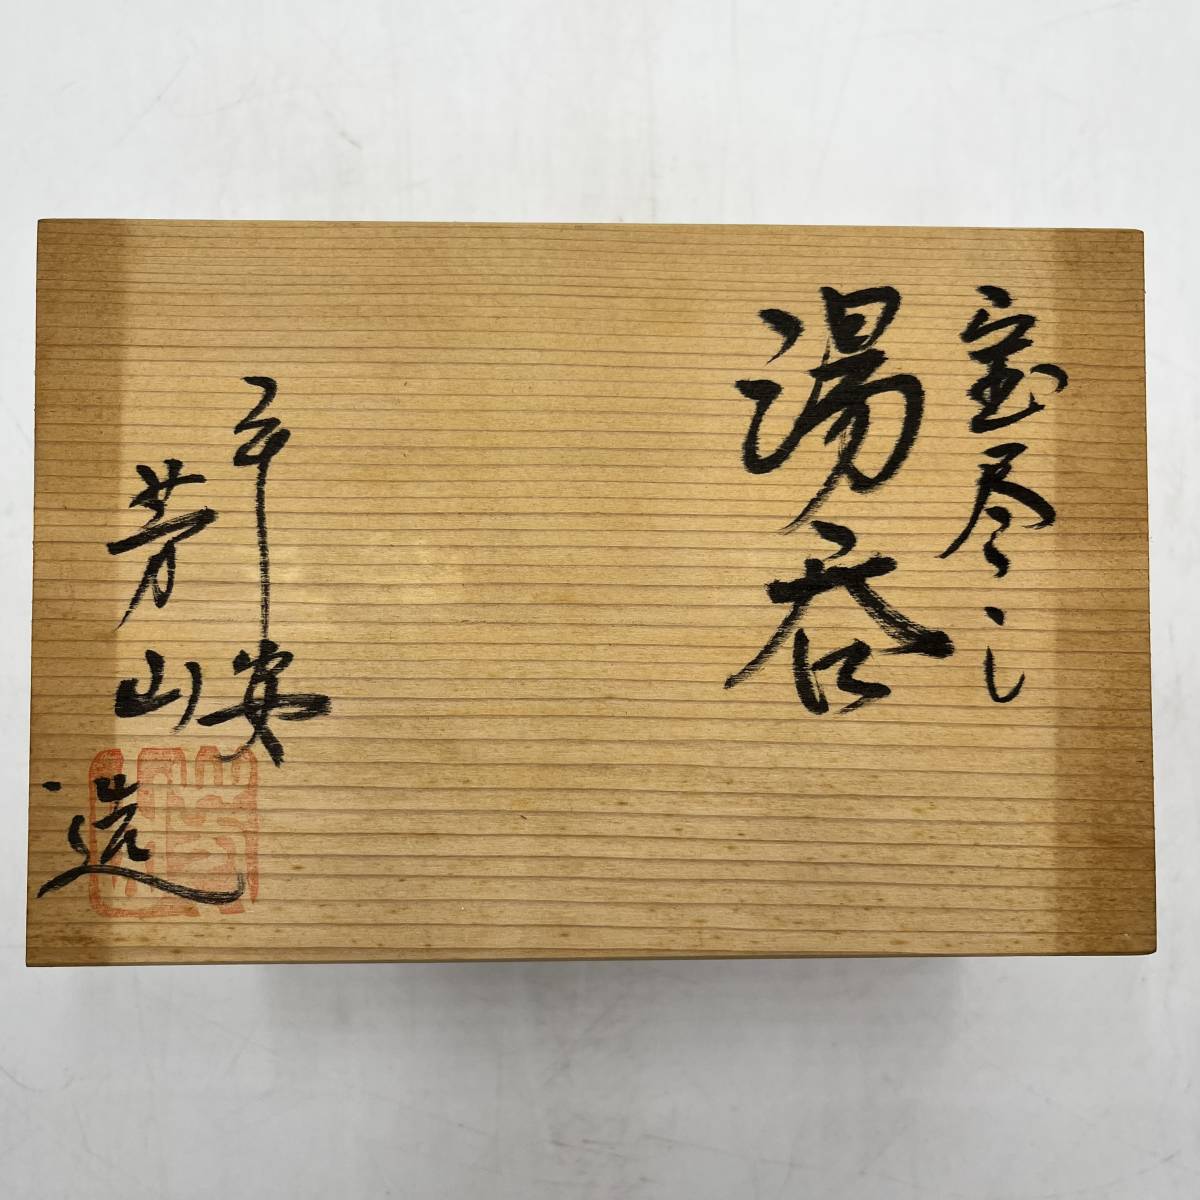 宝尽し
湯呑
平安
芳山
造